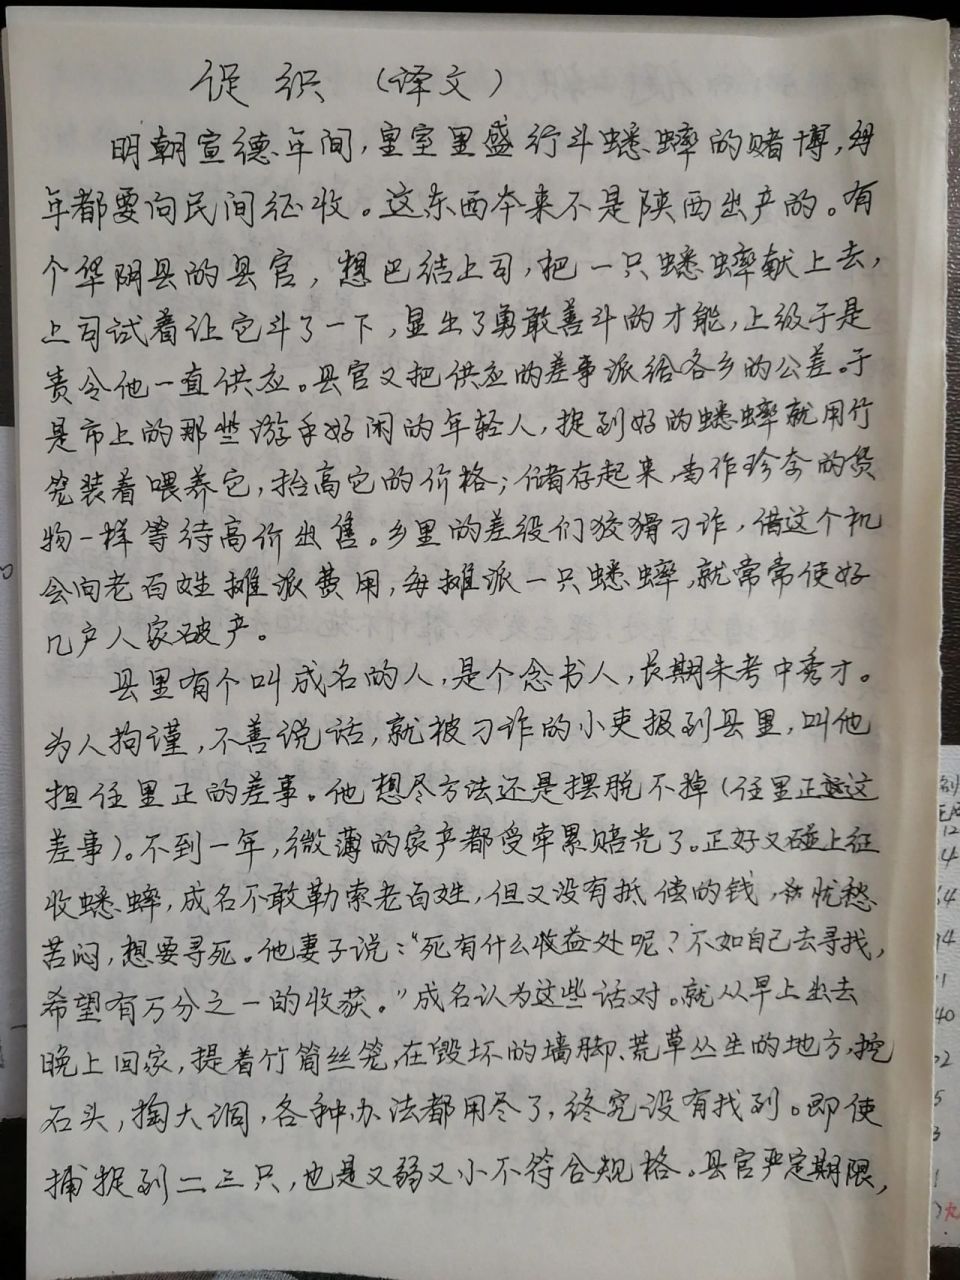 促织（译文）
明朝宣德年间，皇室里盛行斗蟋蟀的赌博，每
年都要向民间征收。这东西本来不是陕西出产的。有
个华阴县的县官，想巴结上司，把一只蟋蟀献上去，
上司试着让它斗了一下，显出了勇敢善斗的才能，上级于是
责令他一直供应。县官又把供应的差事派给各乡的公差。于
是市上的那些游手好闲的年轻人，捉到好的蟋蟀就用竹
笼装着喂养它，抬高它的价格；储存起来，当作珍奇的货
物一样等待高价出售。乡里的差役们狡猾刁诈，借这个机
会向老百姓摊派费用，每摊派一只蟋蟀，就常常使好
几户人家破产。
县里有个叫成名的人，是个念书人，长期未考中秀才。
为人拘谨，不善说话，就被刁诈的小吏报到县里，叫他
担任里正的差事。他想尽方法还是摆脱不掉（任里正这
差事）。不到一年，微薄的家产都受牵累赔光了。正好又碰上征
收蟋蟀，成名不敢勒索老百姓，但又没有抵偿的钱，忧愁
苦闷，想要寻死。他妻子说：“死有什么收益处呢？不如自己去寻找，
希望有万分之一的收获。”成名认为这些话对。就从早上出去
晚上回家，提着竹筒丝笼，在毁坏的墙脚、荒草丛生的地方，挖
石头，掏大洞，各种办法都用尽了，终究没有找到。即使
捕捉到二三只，也是又弱又小不符合规格。县官严定期限，
12
40